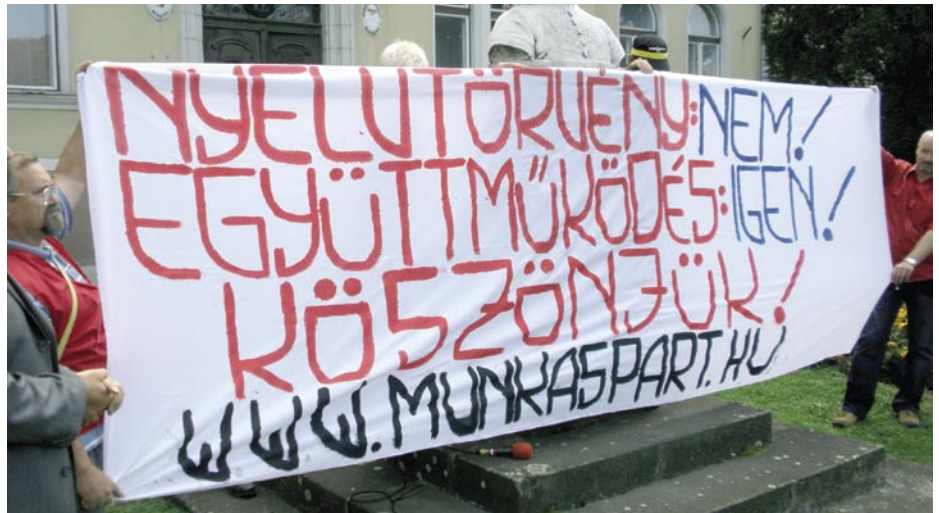 NYELVTÖRVÉNY: NEM!
EGYÜTTMŰKÖDÉS: IGEN!
KÖSZÖNJÜK!
WWW.MUNKASPART.HU